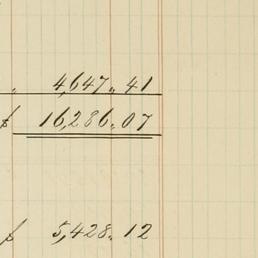 " 4,647.41
$ 16,286.07
$ 5,428.12